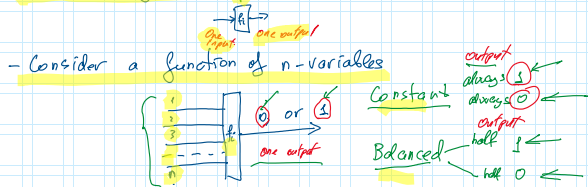 fi
One input. one output
- Consider a function of n-variables
1
2
3
n
fi
0 or 1
one output
Constant
output
always 1
always 0
Balanced
output
half 1
half 0